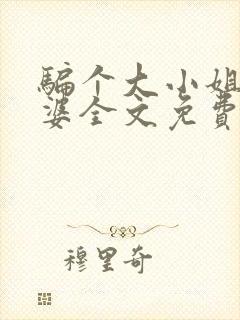 骗个大小姐
婆全文免费
穆里奇